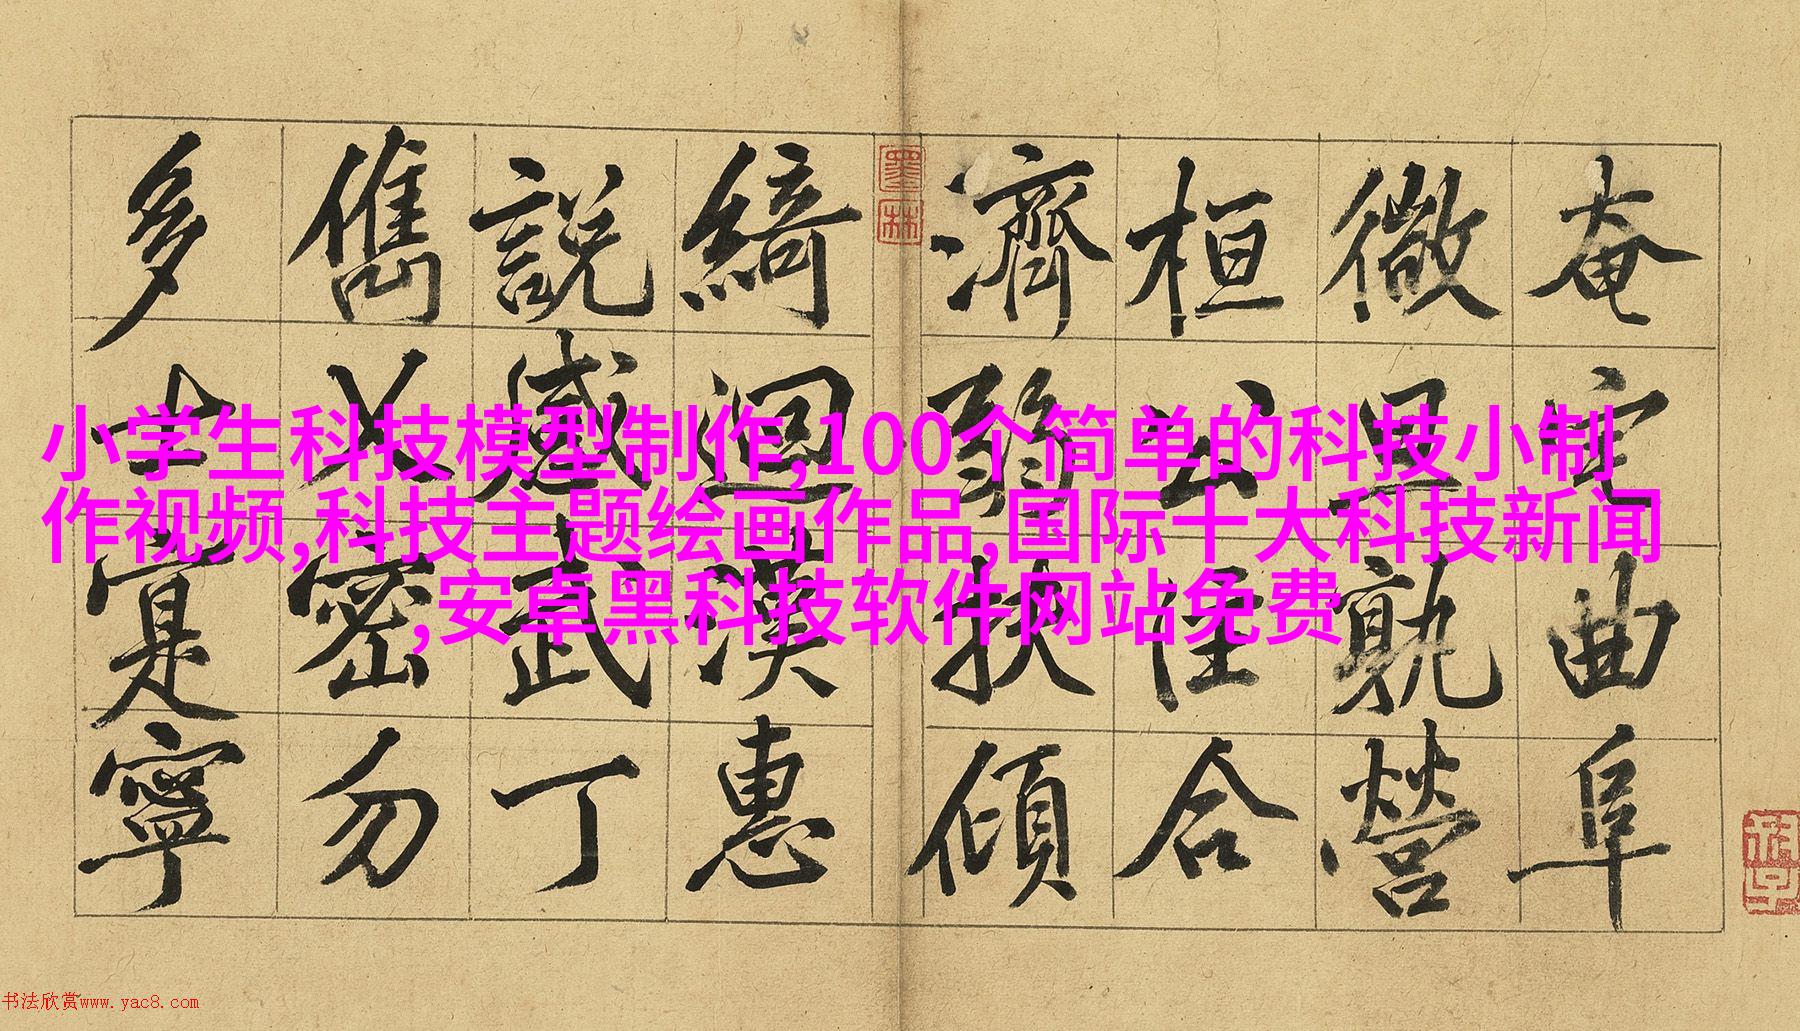 奄宅曲阜
微旦孰營
桓公匡合
濟弱扶傾
綺迴漢惠
說感武丁
儁乂密勿
多士寔寧
墨林
小学生科技模型制作,100个简单的科技小制
作视频,科技主题绘画作品,国际十大科技新闻
,安卓黑科技软件网站免费
书法欣赏www.yac8.com